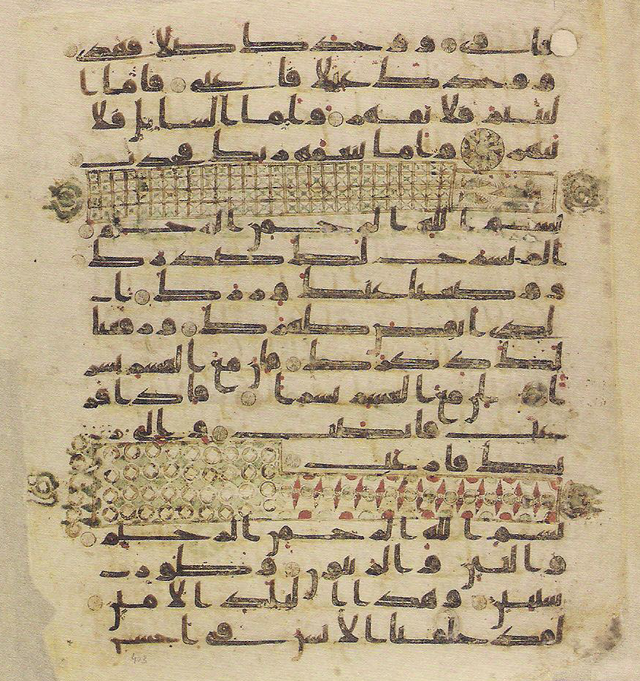 فاوى ووجدك ضالا فهدى
ووجدك عائلا فاغنى فاما ا
ليتيم فلا تقهر واما السائل فلا
تنهر واما بنعمة ربك فحدث
بسم الله الرحمن الرحيم
الم نشرح لك صدرك
ووضعنا عنك وزرك ا
لذي انقض ظهرك ورفعنا
لك ذكرك فان مع العسر يسر
ا ان مع العسر يسرا فاذا فر
غت فانصب والى ر
بك فارغب
بسم الله الرحمن الرحيم
والتين والزيتون وطور
سينين وهذا البلد الامين
لقد خلقنا الانسن في احسن